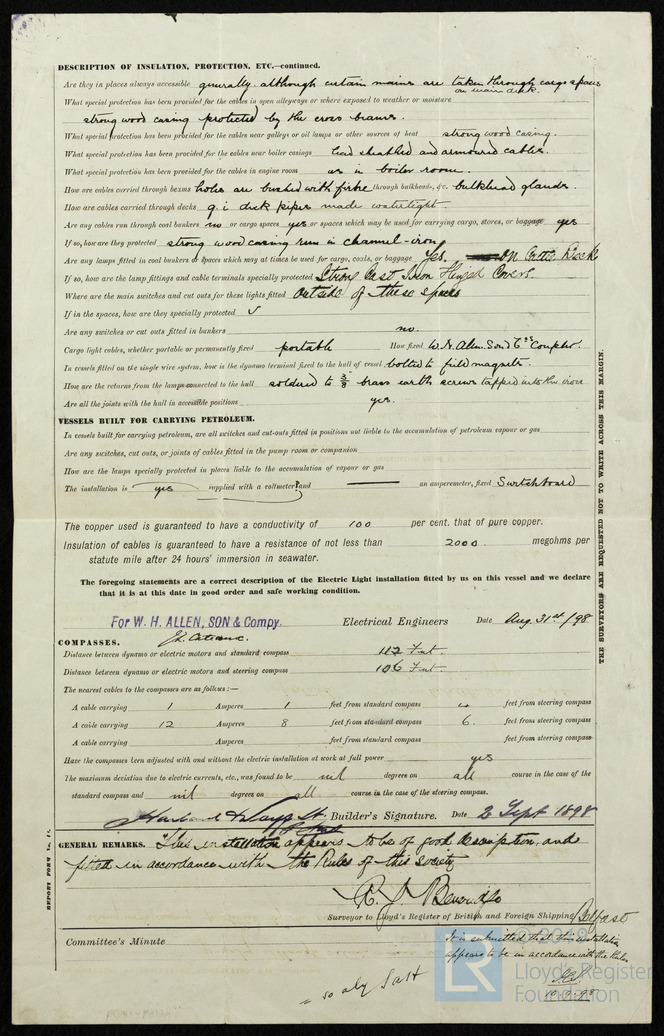 DESCRIPTION OF INSULATION, PROTECTION, ETC.—continued.
Are they in places always accessible generally although certain mains are taken through cargo spaces
on main deck.
What special protection has been provided for the cables in open alleyways or where exposed to weather or moisture
strong wood casing protected by the cross beams.
What special protection has been provided for the cables near galleys or oil lamps or other sources of heat strong wood casing.
What special protection has been provided for the cables near boiler casings lead sheathed and armoured cables.
What special protection has been provided for the cables in engine room as in boiler room.
How are cables carried through beams holes are bushed with fibre through bulkheads, &c. bulkhead glands.
How are cables carried through decks g.i deck pipes made watertight
Are any cables run through coal bunkers no or cargo spaces yes or spaces which may be used for carrying cargo, stores, or baggage yes
If so, how are they protected strong wood casing run in channel iron
Are any lamps fitted in coal bunkers or spaces which may at times be used for cargo, coals, or baggage Yes. On Deck
If so, how are the lamp fittings and cable terminals specially protected Strong Cast Iron Hinged Covers.
Where are the main switches and cut outs for these lights fitted Outside of these spaces
If in the spaces, how are they specially protected ✓
Are any switches or cut outs fitted in bunkers no.
Cargo light cables, whether portable or permanently fixed portable How fixed W. H. Allen. Son & Co's Coupler.
In vessels fitted on the single wire system, how is the dynamo terminal fixed to the hull of vessel bolted to field magnets.
How are the returns from the lamps connected to the hull soldered to 3/8 brass earth screws tapped into the iron
Are all the joints with the hull in accessible positions yes.
VESSELS BUILT FOR CARRYING PETROLEUM.
In vessels built for carrying petroleum, are all switches and cut-outs fitted in positions not liable to the accumulation of petroleum vapour or gas
Are any switches, cut outs, or joints of cables fitted in the pump room or companion
How are the lamps specially protected in places liable to the accumulation of vapour or gas
The installation is yes supplied with a voltmeter and — an amperemeter, fixed Switchboard
The copper used is guaranteed to have a conductivity of 100 per cent. that of pure copper.
Insulation of cables is guaranteed to have a resistance of not less than 2000 megohms per
statute mile after 24 hours' immersion in seawater.
The foregoing statements are a correct description of the Electric Light installation fitted by us on this vessel and we declare
that it is at this date in good order and safe working condition.
For W. H. ALLEN, SON & Compy. Electrical Engineers Date Aug. 31st /98
COMPASSES.
Distance between dynamo or electric motors and standard compass 112 Feet
Distance between dynamo or electric motors and steering compass 106 Feet
The nearest cables to the compasses are as follows:—
A cable carrying 1 Amperes 1 feet from standard compass feet from steering compass
A cable carrying 12 Amperes 8 feet from standard compass 6. feet from steering compass
A cable carrying Amperes feet from standard compass feet from steering compass
Have the compasses been adjusted with and without the electric installation at work at full power yes
The maximum deviation due to electric currents, etc., was found to be nil degrees on all course in the case of the
standard compass and nil degrees on all course in the case of the steering compass.
Harland & Wolff Ld Builder's Signature. Date 2 Sept 1898
GENERAL REMARKS. This installation appears to be of good description and
fitted in accordance with the Rules of this Society
Surveyor to Lloyd's Register of British and Foreign Shipping Belfast
Committee's Minute
It is submitted that this installation
appears to be in accordance with the Rules
10.9.98
THE SURVEYORS ARE REQUESTED NOT TO WRITE ACROSS THIS MARGIN.
REPORT FORM No. 13.
LR
© 2019
Lloyd's Register
Foundation